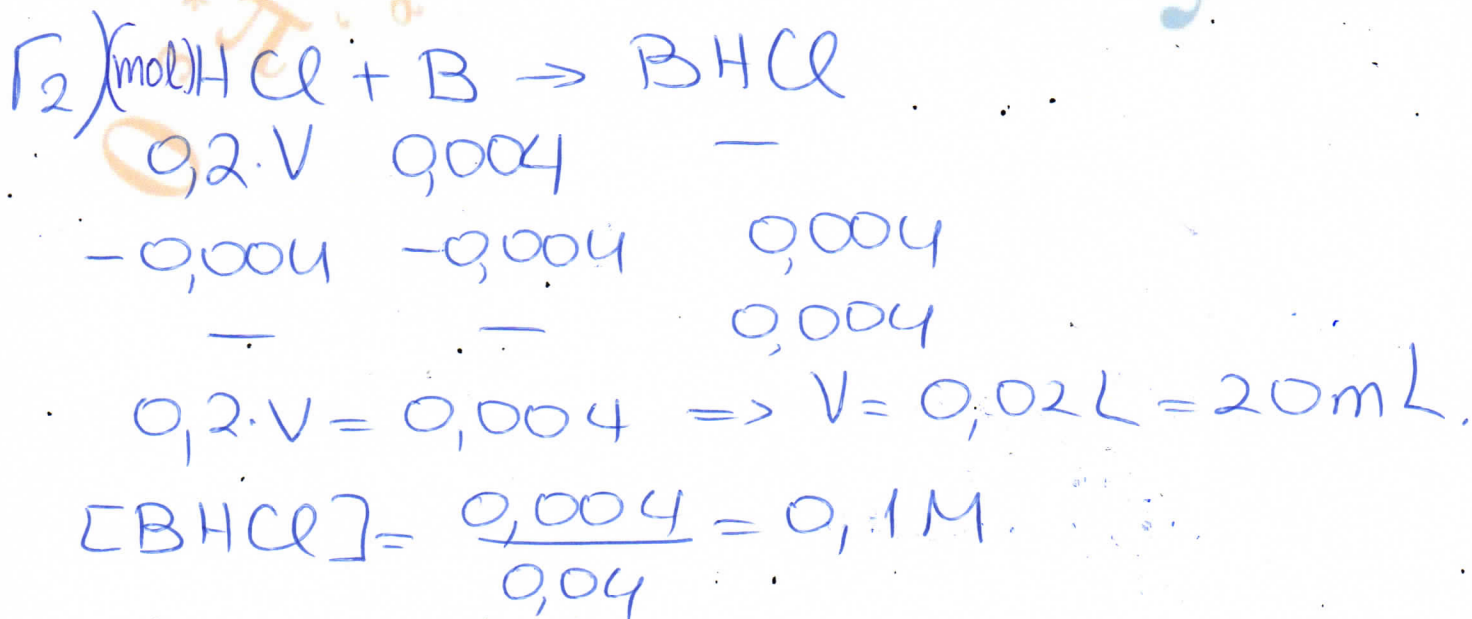 Γ2) (mol) HCl + B → BHCl
0,2·V 0,004 —
-0,004 -0,004 0,004
— — 0,004
0,2·V = 0,004 => V = 0,02L = 20mL.
[BHCl] = 0,004 / 0,04 = 0,1M.